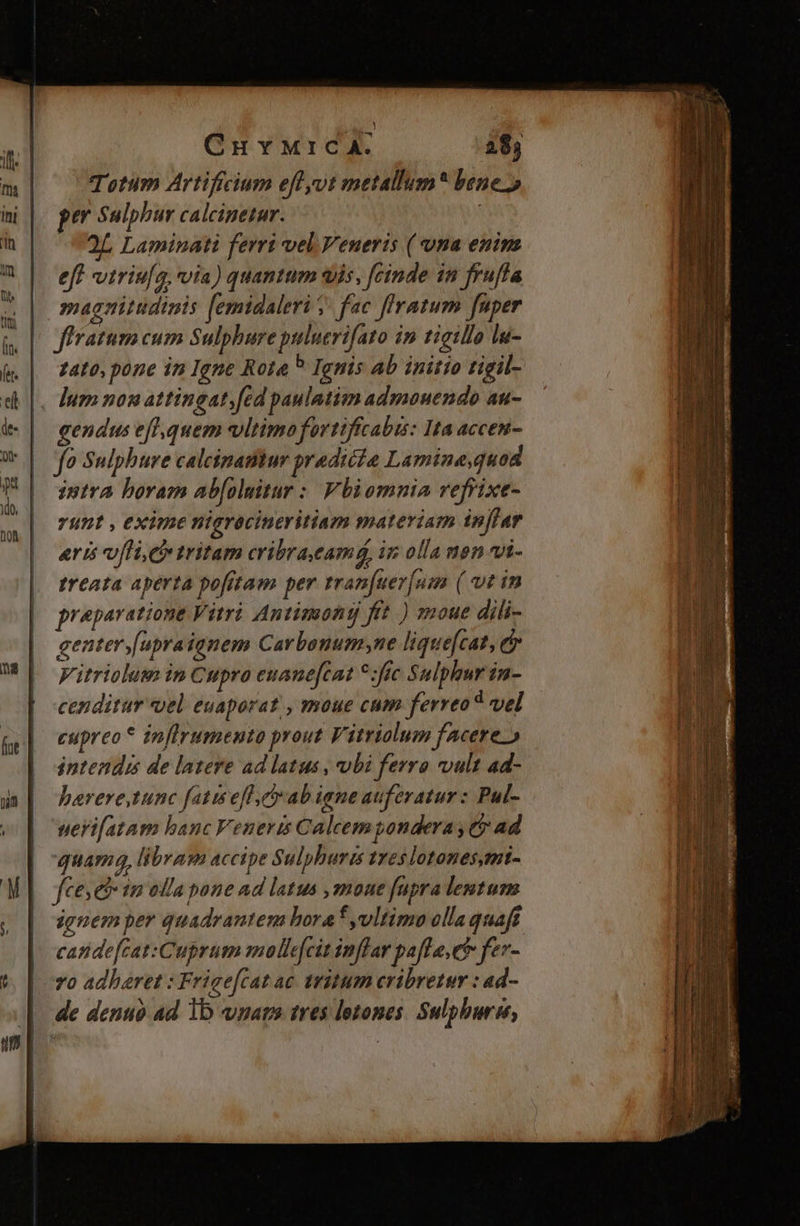 CHYMICA. 285
Totum Artificium eſt, vt metallum ᵃ bene
per Sulphur calcinetur.
♃ Laminati ferri vel Veneris (vna enim
eſt vtriuſq, via) quantum vis, ſcinde in fruſta
magnitudinis ſemidaleri; fac ſtratum ſuper
ſtratum cum Sulphure pulueriſato in tigillo lu-
tato, pone in Igne Rotæ ᵇ Ignis ab initio tigil-
lum non attingat, ſed paulatim admouendo au-
gendus eſt, quem vltimo fortificabis: Ita accen-
ſo Sulphure calcinantur prædictæ Laminæ, quod
intra horam abſoluitur: Vbi omnia refrixe-
runt, exime nigrocineritiam materiam inſtar
æris vſti, & tritam cribra, eamq, in olla non vi-
treata aperta poſitam per tranſuerſum (vt in
præparatione Vitri Antimonij fit) moue dili-
genter, ſupra ignem Carbonum, ne liqueſcat, &
Vitriolum in Cupro euaneſcat ᶜ: ſic Sulphur in-
cenditur vel euaporat, moue cum ferreo ᵈ vel
cupreo ᵉ inſtrumento prout Vitriolum facere
intendis de latere ad latus, vbi ferro vult ad-
hærere, tunc ſatis eſt, & ab igne auferatur: Pul-
ueriſatam hanc Veneris Calcem pondera, & ad
quamq, libram accipe Sulphuris tres lotones, mi-
ſce, & in olla pone ad latus, moue ſupra lentum
ignem per quadrantem horæ ᶠ, vltimo olla quaſi
candeſcat: Cuprum molleſcit inſtar paſtæ, & fer-
ro adhæret: Frigeſcat ac tritum cribretur: ad-
de denuò ad lb vnam tres lotones Sulphuris,